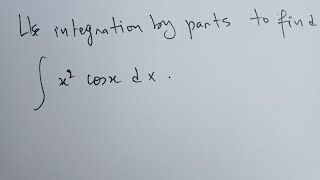 Use integration by parts to find
∫ x² cosx dx .